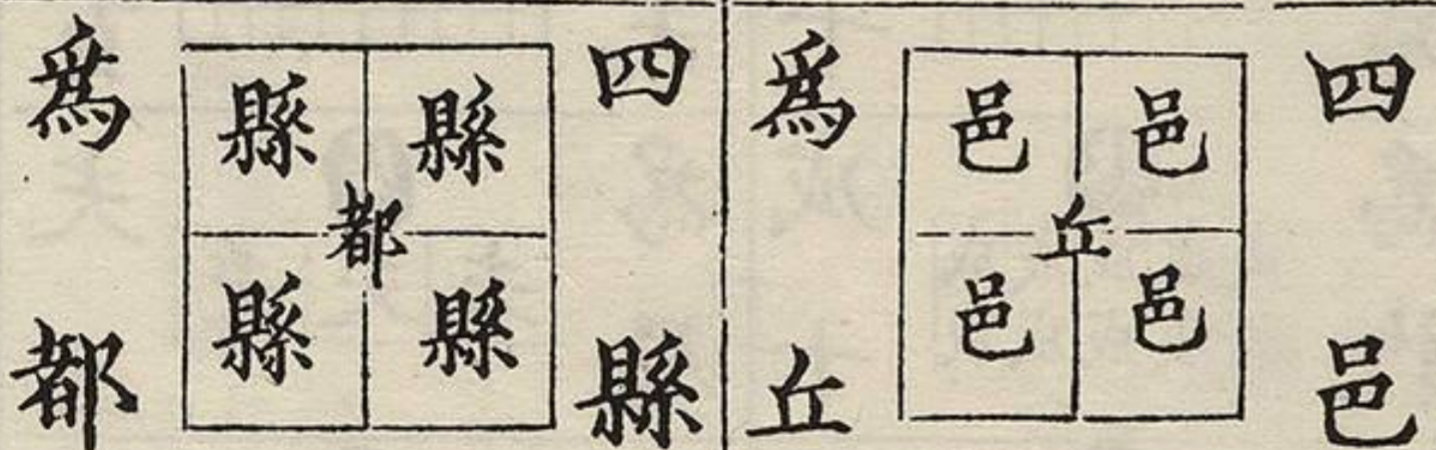 四邑
邑邑
丘
邑邑
爲丘
四縣
縣縣
都
縣縣
爲都